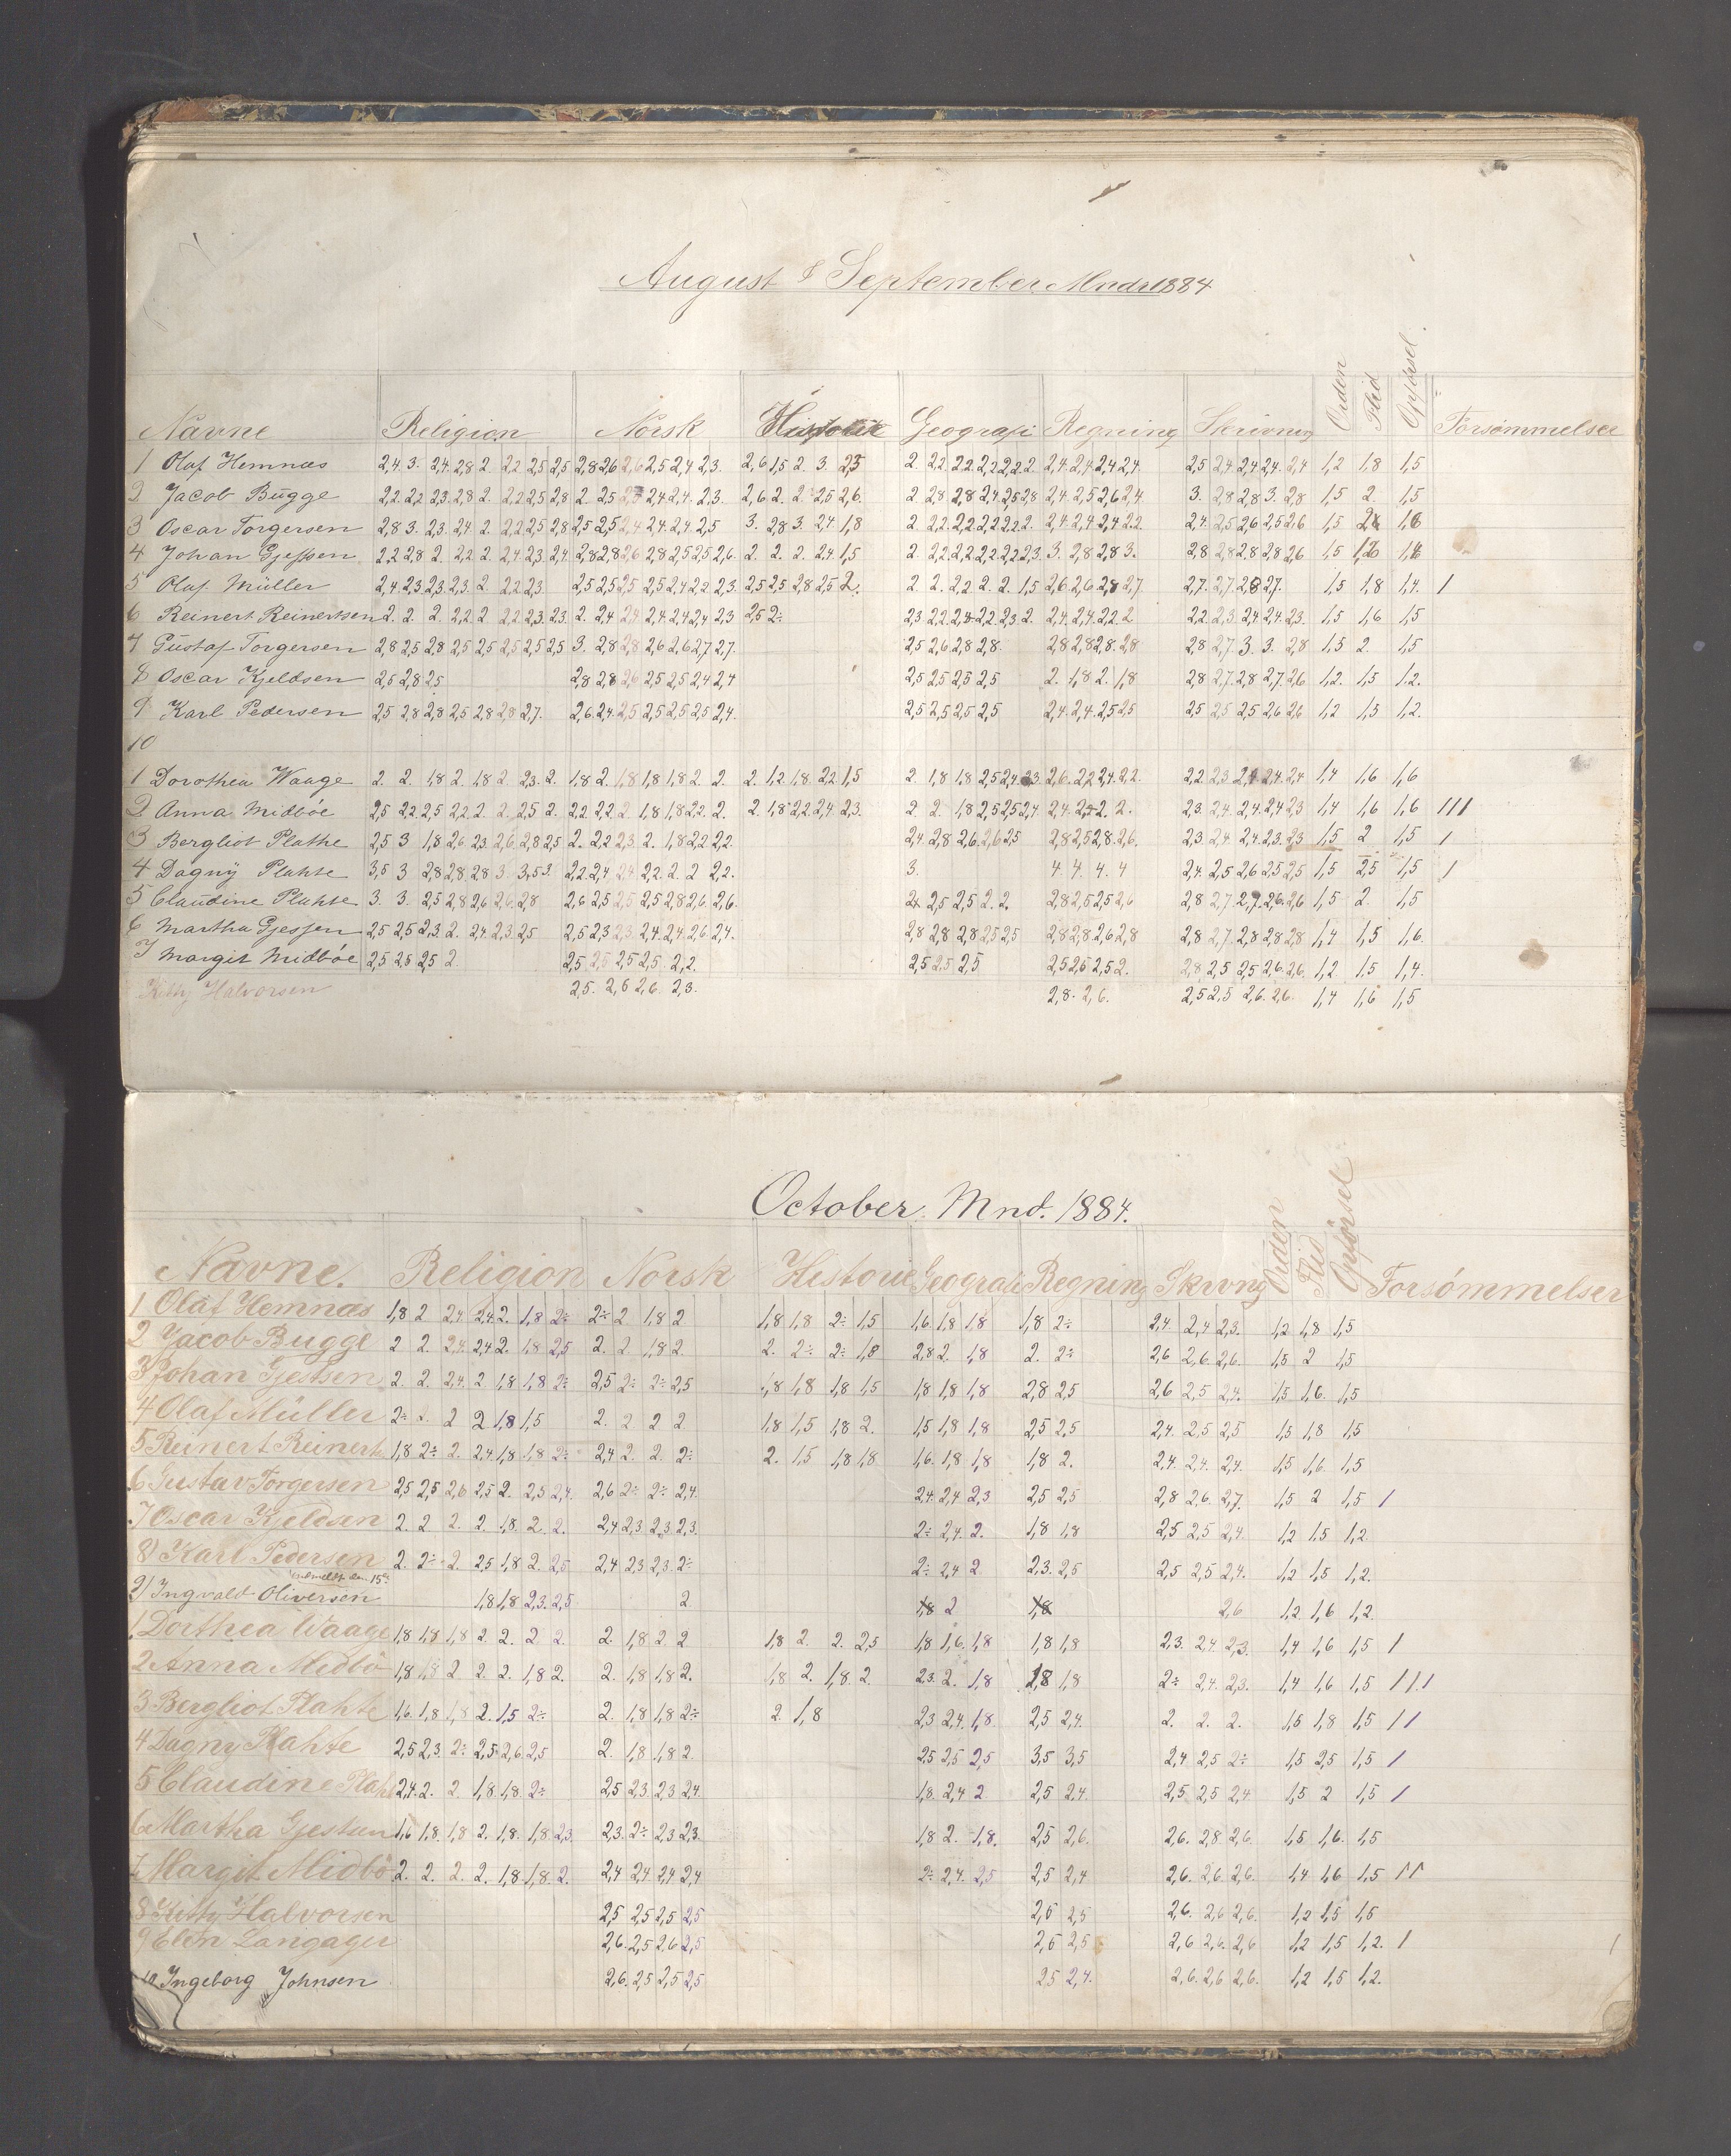 August & September Mndr 1884
Navne Religion Norsk Historie Geografi Regning Skrivning Orden Flid Opførsel Forsømmelser
1 Olaf Hemnæs 2,4. 3. 2,4. 2,8 2. 2,2 2,5 2,5 2,8 2,6 2,6 2,5 2,4 2,3. 2,6 1,5 2. 3. 2,5 2. 2,2. 2,2. 2,2 2,2 2. 2,4. 2,4. 2,4 2,4. 2,5 2,4. 2,4 2,4. 2,4 1,2 1,8 1,5
2 Jacob Bugge 2,2 2,2 2,3 2,8 2. 2,2 2,5 2,8 2. 2,5 2,4 2,4. 2,3. 2,6 2. 2. 2,5 2,6. 2 2,8 2,8 2,4. 2,5 2,8 2,4. 2,5 2,6 2,4. 3. 2,8 2,8 3. 2,8 1,5 2. 1,5
3 Oscar Torgersen 2,8 3. 2,3. 2,4. 2. 2,2 2,5 2,8 2,5 2,5 2,4 2,4 2,4 2,5 3. 2,8 3. 2,4. 1,8 2. 2,2. 2,2 2,2 2,2 2. 2,4. 2,4. 2,4 2,2 2,4. 2,5 2,6 2,5 2,6 1,5
4 Johan Gjessen 2,2 2,8 2. 2,2 2. 2,4 2,3. 2,4. 2,8 2,8 2,6 2,8 2,5 2,5 2,6. 2. 2. 2. 2,4. 1,5 2. 2,2 2,2 2,2 2,2 2,3. 3. 2,8 2,8 3. 2,8 2,8 2,8 2,8 2,6 1,5
5 Olaf Müller 2,4. 2,3. 2,3. 2,3. 2. 2,2 2,3. 2,5 2,5 2,5 2,5 2,4 2,2 2,3. 2,5 2,5 2,8 2,5 2. 2 2. 2,2. 2. 2. 1,5 2,6 2,6. 2,8 2,7. 2,7. 2,7. 2,8 2,7. 1,5 1,8 1,4. 1
6 Reinert Reinertsen 2. 2. 2. 2,2 2 2,2 2,3. 2,3. 2. 2,4 2,4 2,4 2,4 2,4 2,3 2,5 2÷ 2,3 2,2 2,4 2,2. 2,3 2. 2,4. 2,4. 2,2 2 2,2 2,3 2,4 2,4. 2,3. 1,5 1,6 1,5
7 Gustaf Torgersen 2,8 2,5 2,8 2,5 2,5 2,5 2,5 2,5 3. 2,8 2,8 2,6 2,6 2,7 2,7. 2,5 2,6 2,8 2,8. 2,8 2,8 2,8. 2,8 2,8 2,7. 3. 3. 2,8 1,5 2. 1,5
8 Oscar Kjeldsen 2,5 2,8 2,5 2,8 2,8 2,6 2,5 2,5 2,4 2,4 2,5 2,5 2,5 2,5 2. 1,8 2. 1,8 2,8 2,7. 2,8 2,7. 2,6 1,2. 1,5 1,2.
9 Karl Pedersen 2,5 2,8 2,8 2,5 2,8 2,8 2,7. 2,6 2,4. 2,5 2,5 2,5 2,5 2,4. 2,5 2,5 2,5 2,5 2,4. 2,4. 2,5 2,5 2,5 2,5 2,5 2,6 2,6 1,2 1,5 1,2.
10
1 Dorothea Waage 2. 2. 1,8 2. 1,8 2. 2,3. 2. 1,8 2. 1,8 1,8 1,8 2. 2. 2. 1,2. 1,8. 2,2 1,5 2 1,8 1,8 2,5 2,4 2,3 2,6. 2,2 2,4. 2,2. 2,2 2,3 2,4 2,4. 2,4 1,4 1,6 1,6
2 Anna Midbóe 2,5 2,2 2,5 2,2 2. 2. 2,5 2. 2,2 2,2 2 1,8 1,8 2,2 2. 2 1,8 2,2 2,4 2,3. 2 2. 1,8 2,5 2,5 2,4 2,4. 2,4 2. 2. 2,3. 2,4. 2,4. 2,4 2,3 1,4 1,6 1,6 111
3 Bergliot Plathe 2,5 3 1,8 2,6 2,3. 2,6. 2,8 2,5 2. 2,2 2,3. 2. 1,8 2,2 2,2. 2,4. 2,8 2,6. 2,6 2,5 2,8 2,5 2,8. 2,6. 2,3. 2,4. 2,4. 2,3. 2,3 1,5 2 1,5 1
4 Dagny Plahte 3,5 3 2,8 2,8 2,8 3. 3,5 3. 2,2 2,4 2,4 2,2. 2. 2 2,2. 3. 4. 4. 4. 4 2,4. 2,5 2,6 2,5 2,5 1,5 2,5 1,5 1
5 Claudine Plahte 3. 3. 2,5 2,8 2,6 2,6. 2,8 2,6 2,5 2,5 2,5 2,8 2,6. 2,6. 2,4 2,5 2,5 2. 2. 2,8 2,5 2,5 2,6 2,8 2,7. 2,7. 2,6. 2,6 1,5 2. 1,5
6 Martha Gjessen 2,5 2,5 2,3. 2. 2,4. 2,3. 2,5 2,5 2,3 2,3 2,4. 2,4. 2,6 2,4. 2,8 2,8 2,8 2,5 2,5 2,8 2,8. 2,6 2,8 2,8 2,7. 2,8 2,8 2,8 1,4 1,5 1,6.
7 Margit Midbóe 2,5 2,5 2,5 2. 2,5 2,5 2,5 2,5. 2,2. 2,5 2,5 2,5 2,5 2,5 2,5 2. 2,8 2,5 2,5 2,6. 2,6. 1,2. 1,5 1,4.
Kitty Halvorsen 2,5. 2,6 2,6. 2,3. 2,8. 2,6. 2,5 2,5 2,6. 2,6. 1,4 1,6 1,5
October. Mnd. 1884.
Navne. Religion Norsk Historie Geografi Regning Skrvng Orden Flid Opførsel Forsømmelser
1 Olaf Hemnæs 1,8 2 2,4. 2,4 2. 1,8 2÷ 2÷ 2 1,8 2 1,8 1,8 2÷ 1,5 1,6. 1,8 1,8 1,8 2÷ 2,4. 2,4 2,3. 1,2 1,8 1,5
2 Jacob Bugge 2 2. 2,4. 2,4 2. 1,8 2,5 2. 2. 1,8 2. 2. 2÷ 2÷ 1,8 2,8 2. 1,8 2. 2÷ 2,6 2,6. 2,6. 1,5 2 1,5
3 Johan Gjestsen 2. 2. 2,4. 2 1,8 1,8 2÷ 2,5 2÷ 2÷ 2,5 1,8 1,8 1,8 1,5 1,8 1,8 1,8 2,8 2,5 2,6 2,5 2,4. 1,5 1,6. 1,5
4 Olaf Müller 2÷ 2. 2 2 1,8 1,5 2. 2 2 2 1,8 1,5 1,8 2. 1,5 1,8 1,8 2,5 2,5 2,4. 2,5 2,5 1,5 1,8 1,5
5 Reinert Reinerts 1,8 2÷ 2. 2,4 1,8 1,8 2÷ 2,4 2. 2. 2÷ 2. 1,5 1,8 1,8 1,6. 1,8 1,8 1,8 2. 2,4. 2,4. 2,4. 1,5 1,6. 1,5
6 Gustav Torgersen 2,5 2,5 2,6 2,5 2. 2,3 2,4. 2,6 2÷ 2÷ 2,4. 2,4. 2,4 2,3 2,5 2,5 2,8 2,6. 2,7. 1,5 2 1,5 1
7 Oscar Kjeldsen 2. 2 2. 2. 1,8. 2. 2. 2,4 2,3. 2,3. 2,3. 2÷ 2,4. 2. 1,8 1,8 2,5 2,5 2,4. 1,2 1,5 1,2.
8) Karl Pedersen 2. 2÷ 2. 2,5 1,8 2. 2,5 2,4 2,3 2,3. 2÷ 2÷ 2,4 2 2,3. 2,5 2,5 2,5 2,4. 1,2 1,5 1,2.
9) Ingvald Oliversen 1,8 1,8 2,3. 2,5 2 1,8 2 1,8 2,6 1,2. 1,6 1,2.
1. Dorthea Waage 1,8 1,8 1,8 2. 2. 2 2. 2. 1,8 2. 2 1,8 2. 2. 2,5 1,8 1,6. 1,8 1,8 1,8 2,3. 2,4. 2,3. 1,4 1,6 1,5 1
2 Anna Midbö 1,8 1,8 2 2. 2. 1,8 2. 2. 1,8 1,8 2. 1,8 2. 1,8. 2. 2,3. 2. 1,8 1,8 1,8 2÷ 2,4. 2,3. 1,4 1,6 1,5 111
3 Bergliot Plahte 1,6. 1,8 1,8 2. 1,5 2÷ 2. 1,8 1,8 2÷ 2. 1,8 2,3 2,4. 1,8. 2,5 2,4. 2. 2. 2. 1,5 1,8 1,5 11
4 Dagny Plahte 2,5 2,3. 2÷ 2,5 2,6. 2,5 2. 1,8 1,8 2. 2,5 2,5 2,5 3,5 3,5 2,4 2,5 2÷ 1,5 2,5 1,5 1
5 Claudine Plaht 2,4. 2. 2. 1,8. 1,8. 2÷ 2,5 2,3. 2,3 2,4. 1,8. 2,4 2 2,5 2,4. 2,5. 2,5 2,4 1,5 2 1,5 1
6 Martha Gjestsen 1,6 1,8. 1,8 2. 1,8. 1,8. 2,3. 2,3. 2÷ 2,3 2,3. 1,8 2. 1,8. 2,5 2,6. 2,6. 2,8 2,6. 1,5 1,6. 1,5
7 Margit Midbö 2. 2. 2. 2. 1,8 1,8. 2. 2,4 2,4. 2,4 2,4 2÷ 2,4. 2,5 2,5 2,4 2,6. 2,6. 2,6. 1,4 1,6 1,5 11
8 Kitty Halvorsen 2,5 2,5 2,5 2,5 2,5 2,5 2,6. 2,6 2,6. 1,2 1,5 1,5
9 Elen Langager 2,6. 2,5 2,6 2,5 2,5 2,5 2,6 2,6. 2,6 1,2 1,5 1,2. 1
10 Ingeborg Johnsen 2,6. 2,5 2,5 2,5 2,5 2,4. 2,6. 2,6 2,6. 1,2 1,5 1,2.